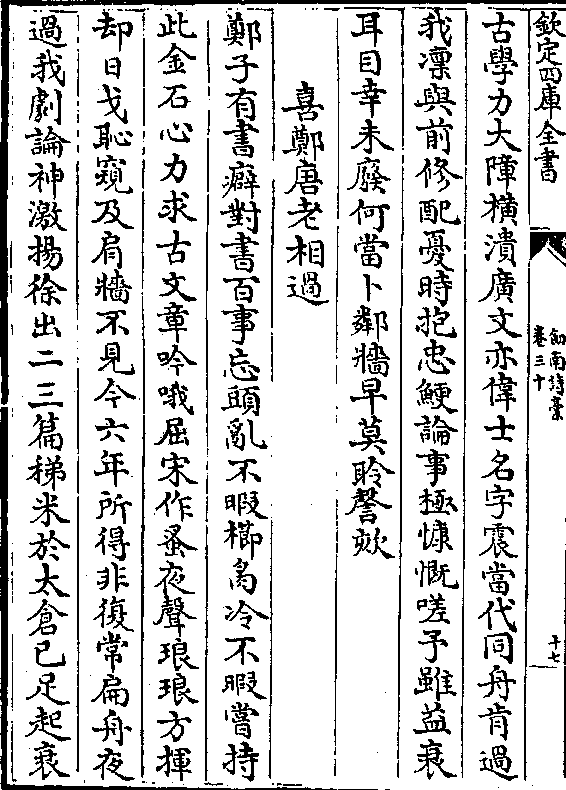 欽定四庫全書
劍南詩藁
卷三十
十七
古學力大障橫潰廣文亦偉士名字震當代同舟肯過
我凜與前修配憂時抱忠鯁論事極慷慨嗟予雖益衰
耳目幸未廢何當卜鄰牆早莫聆謦欬
喜鄭唐老相過
鄭子有書癖對書百事忘頭亂不暇櫛胾冷不暇嘗持
此金石心力求古文章吟哦屈宋作蚤夜聲琅琅方揮
却日戈恥窺及肩牆不見今六年所得非復常扁舟夜
過我劇論神激揚徐出二三篇稊米於太倉已足起衰